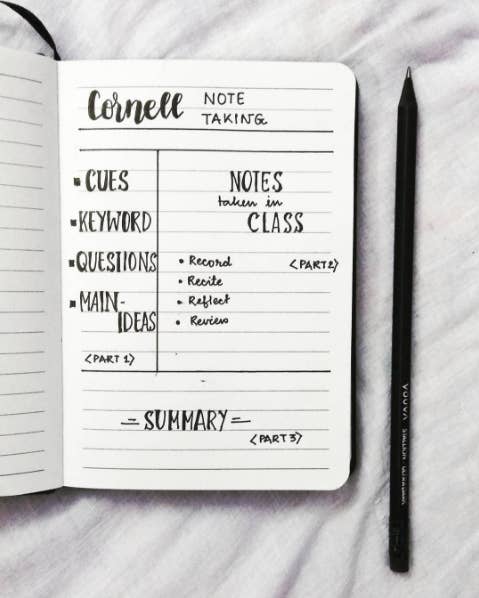 Cornell NOTE
TAKING
▪ CUES
▪ KEYWORD
▪ QUESTIONS
▪ MAIN-
IDEAS
<PART 1>
NOTES
taken in
CLASS
• Record
• Recite
• Reflect
• Review
<PART2>
= SUMMARY =
<PART 3>